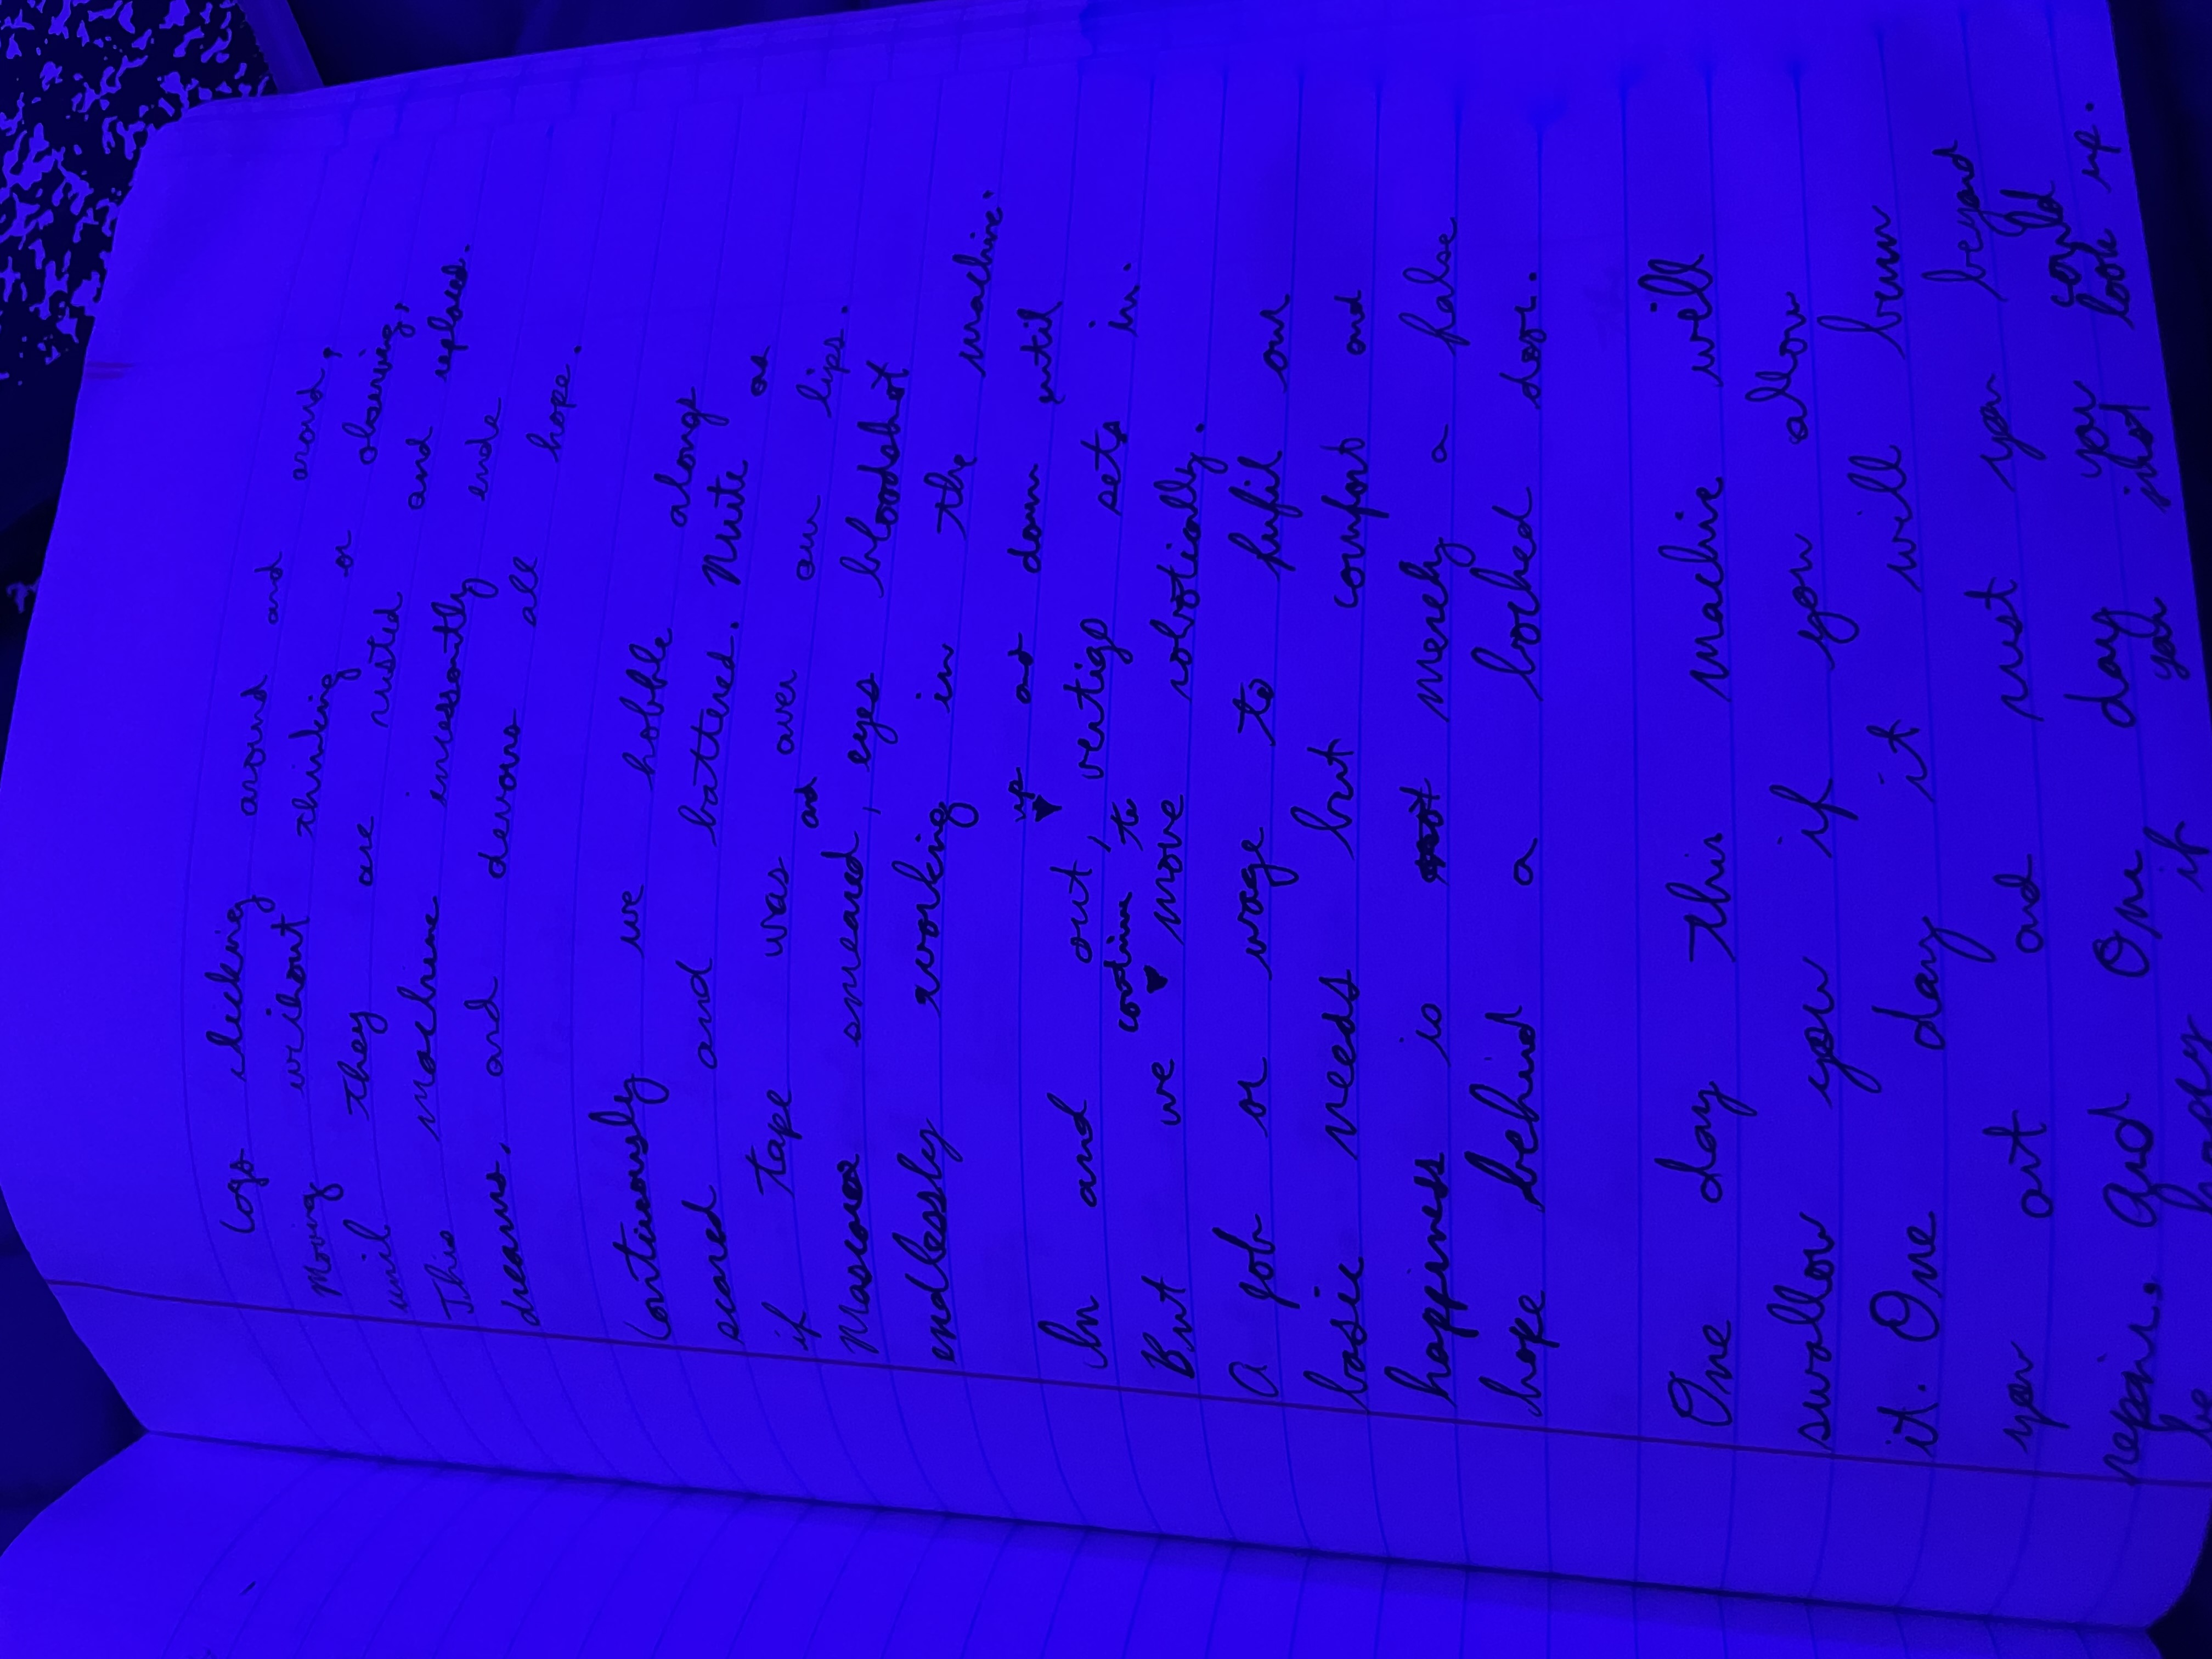 Cogs clicking around and around,
Moving wihout thinking or observing,
until they are rusted and replaced.
This machine incessantly ends
dreams, and devours all hope.
Continuously we hobble alongs
scared and battered. Mute as
if tape was over our lips.
and
Mascara smeared, eyes bloodshot
endlessly working in the machine.
In and out, up and down until
vertigo sets in.
But we continue to move robotically.
A job or wage to fufil our
basic needs but comfort and
happiness is merely a false
hope behind a locked door.
One day this machine will
swallow you if you allow
it. One day it will burn
you out and rust you beyond
repair. And One day you could
be if you just look up.